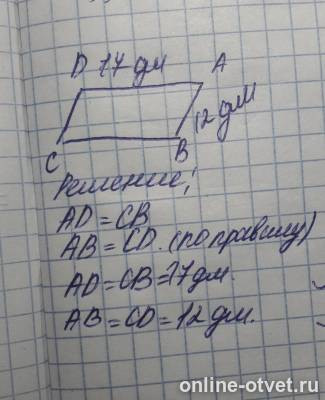 D 17 дм A
12 дм
C B
Решение:
AD = CB
AB = CD. (по правилу)
AD = CB = 17 дм.
AB = CD = 12 дм.
online-otvet.ru